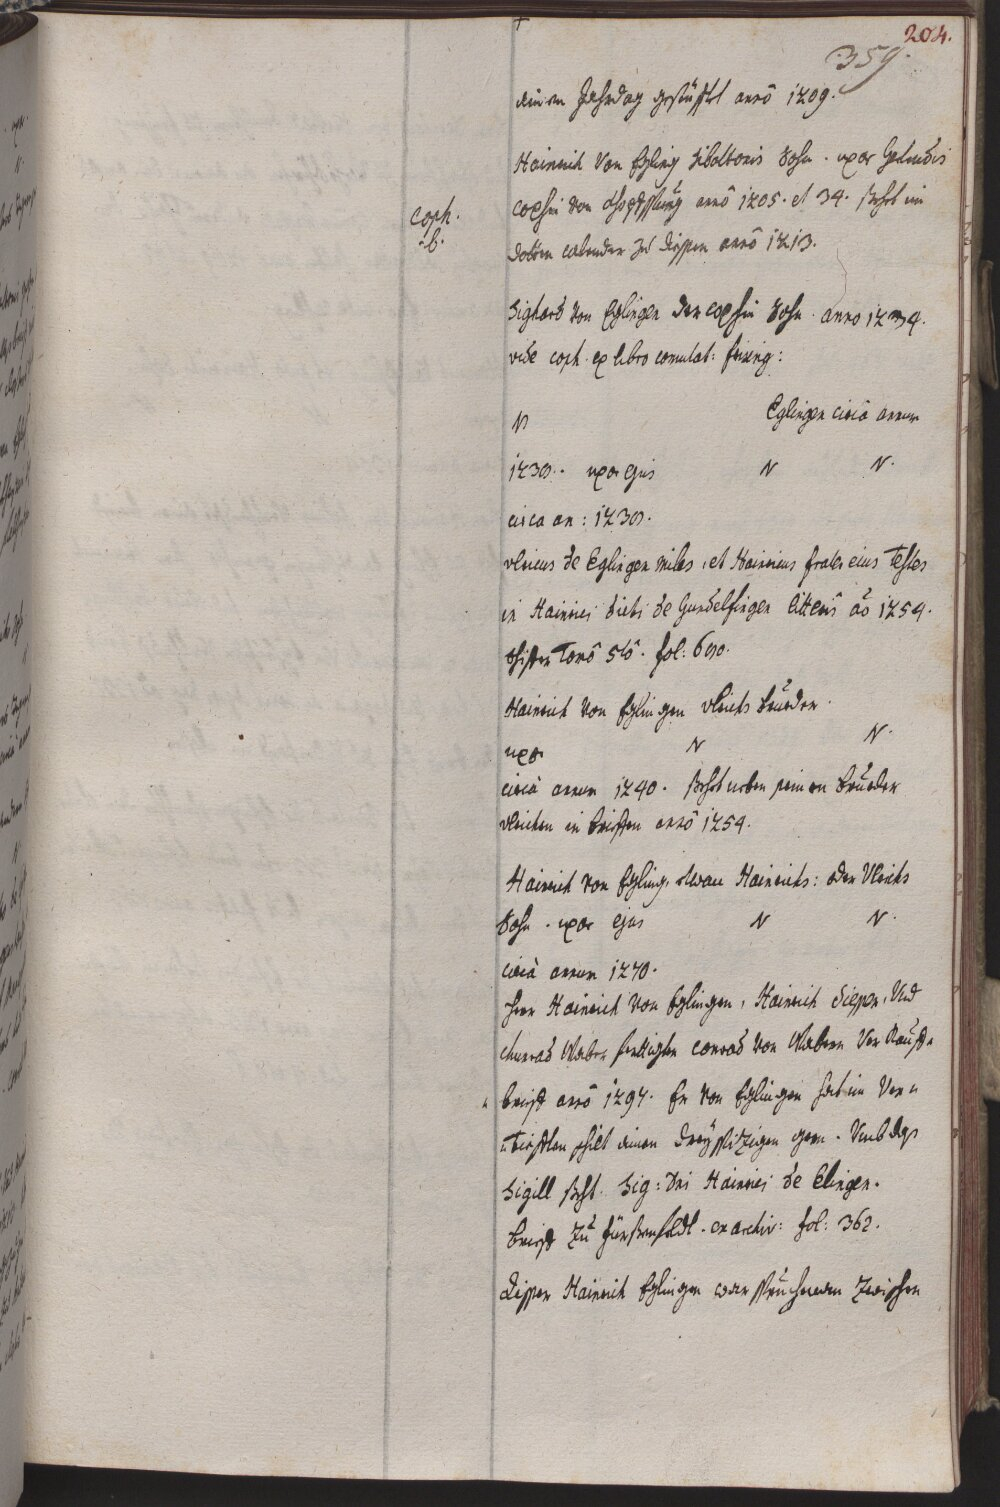 204.
359.
ainen Jahrdag gestüfftet annô 1209.
Hainrich von Egling Siboltonis Sohn. uxor Gertrudis
coph.
.b.
annô 1205. et 34. steht im
calender zu diessen annô 1213.
Sighard von Eglingen Sohn. anno 1234.
vide coph. ex libro comutat: frising:
N Eglingen circa annum
1230. uxor ejus N N.
circa an: 1230.
Ulricus de Eglingen miles, et Hainricus frater eius Testes
in Hainrici dicti de Gundelfingen litteris aō 1254.
Tomô 5tô. fol: 690.
Hainrich von Eglingen Ulrichs brueder.
uxor N N.
circà annum 1240. steht neben seinen brueder
Ulrichen in brieffen annô 1254.
Hainrich von Egling, etwan Hainrichs: oder Ulrichs
Sohn. uxor ejus N N.
circà annum 1270.
Herr Hainrich von Eglingen, Hainrich diesser, Und
Conrad von Wabern Ver Kauffs
brieff annô 1297. Er von Eglingen hat im Ver
schilt ainen Dreyspitzigen gern. Umb das
Sigill steht. Sig: Dni Hainrici de Elingen.
brieff Zu fürstenfeldt. ex archiv: fol: 362.
Disser Hainrich Eglinger war Zwischen